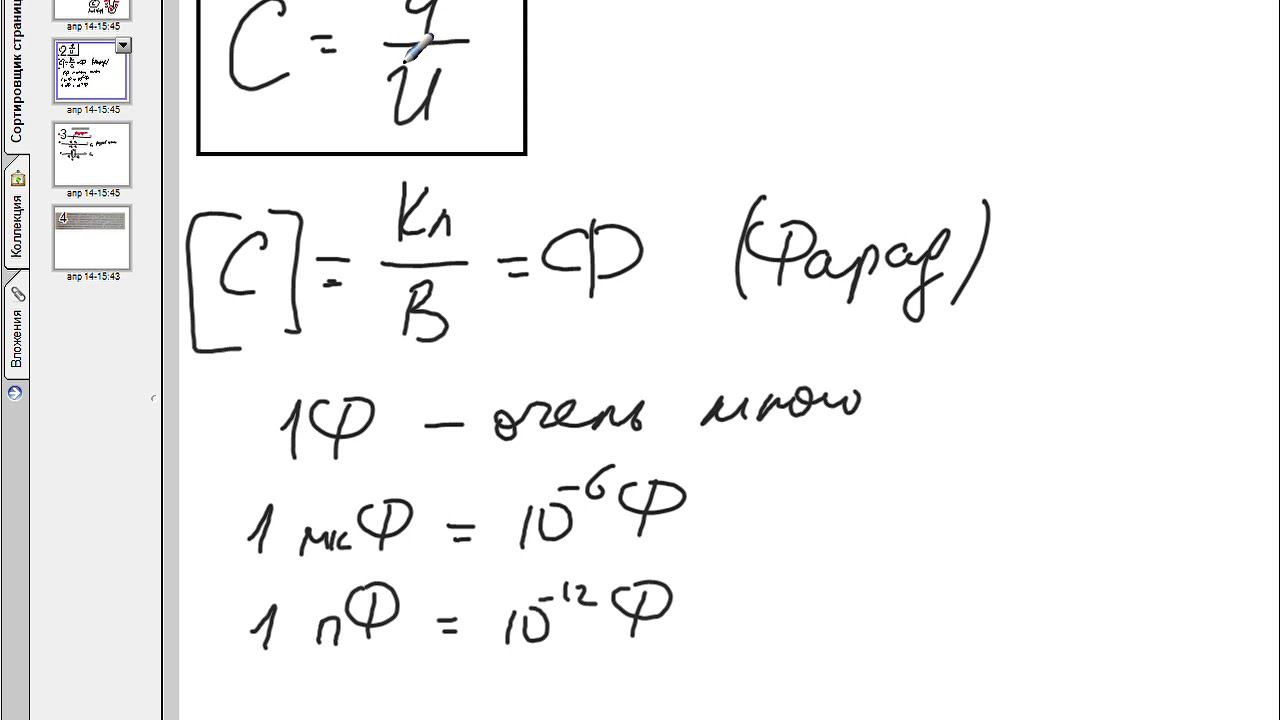 Сортировщик страниц
Коллекция
Вложения
апр 14-15:45
2
апр 14-15:45
3
апр 14-15:45
4
апр 14-15:43
C = q/U
[C] = Кл/В = Ф (Фарад)
1Ф – очень много
1 мкФ = 10⁻⁶ Ф
1 пФ = 10⁻¹² Ф